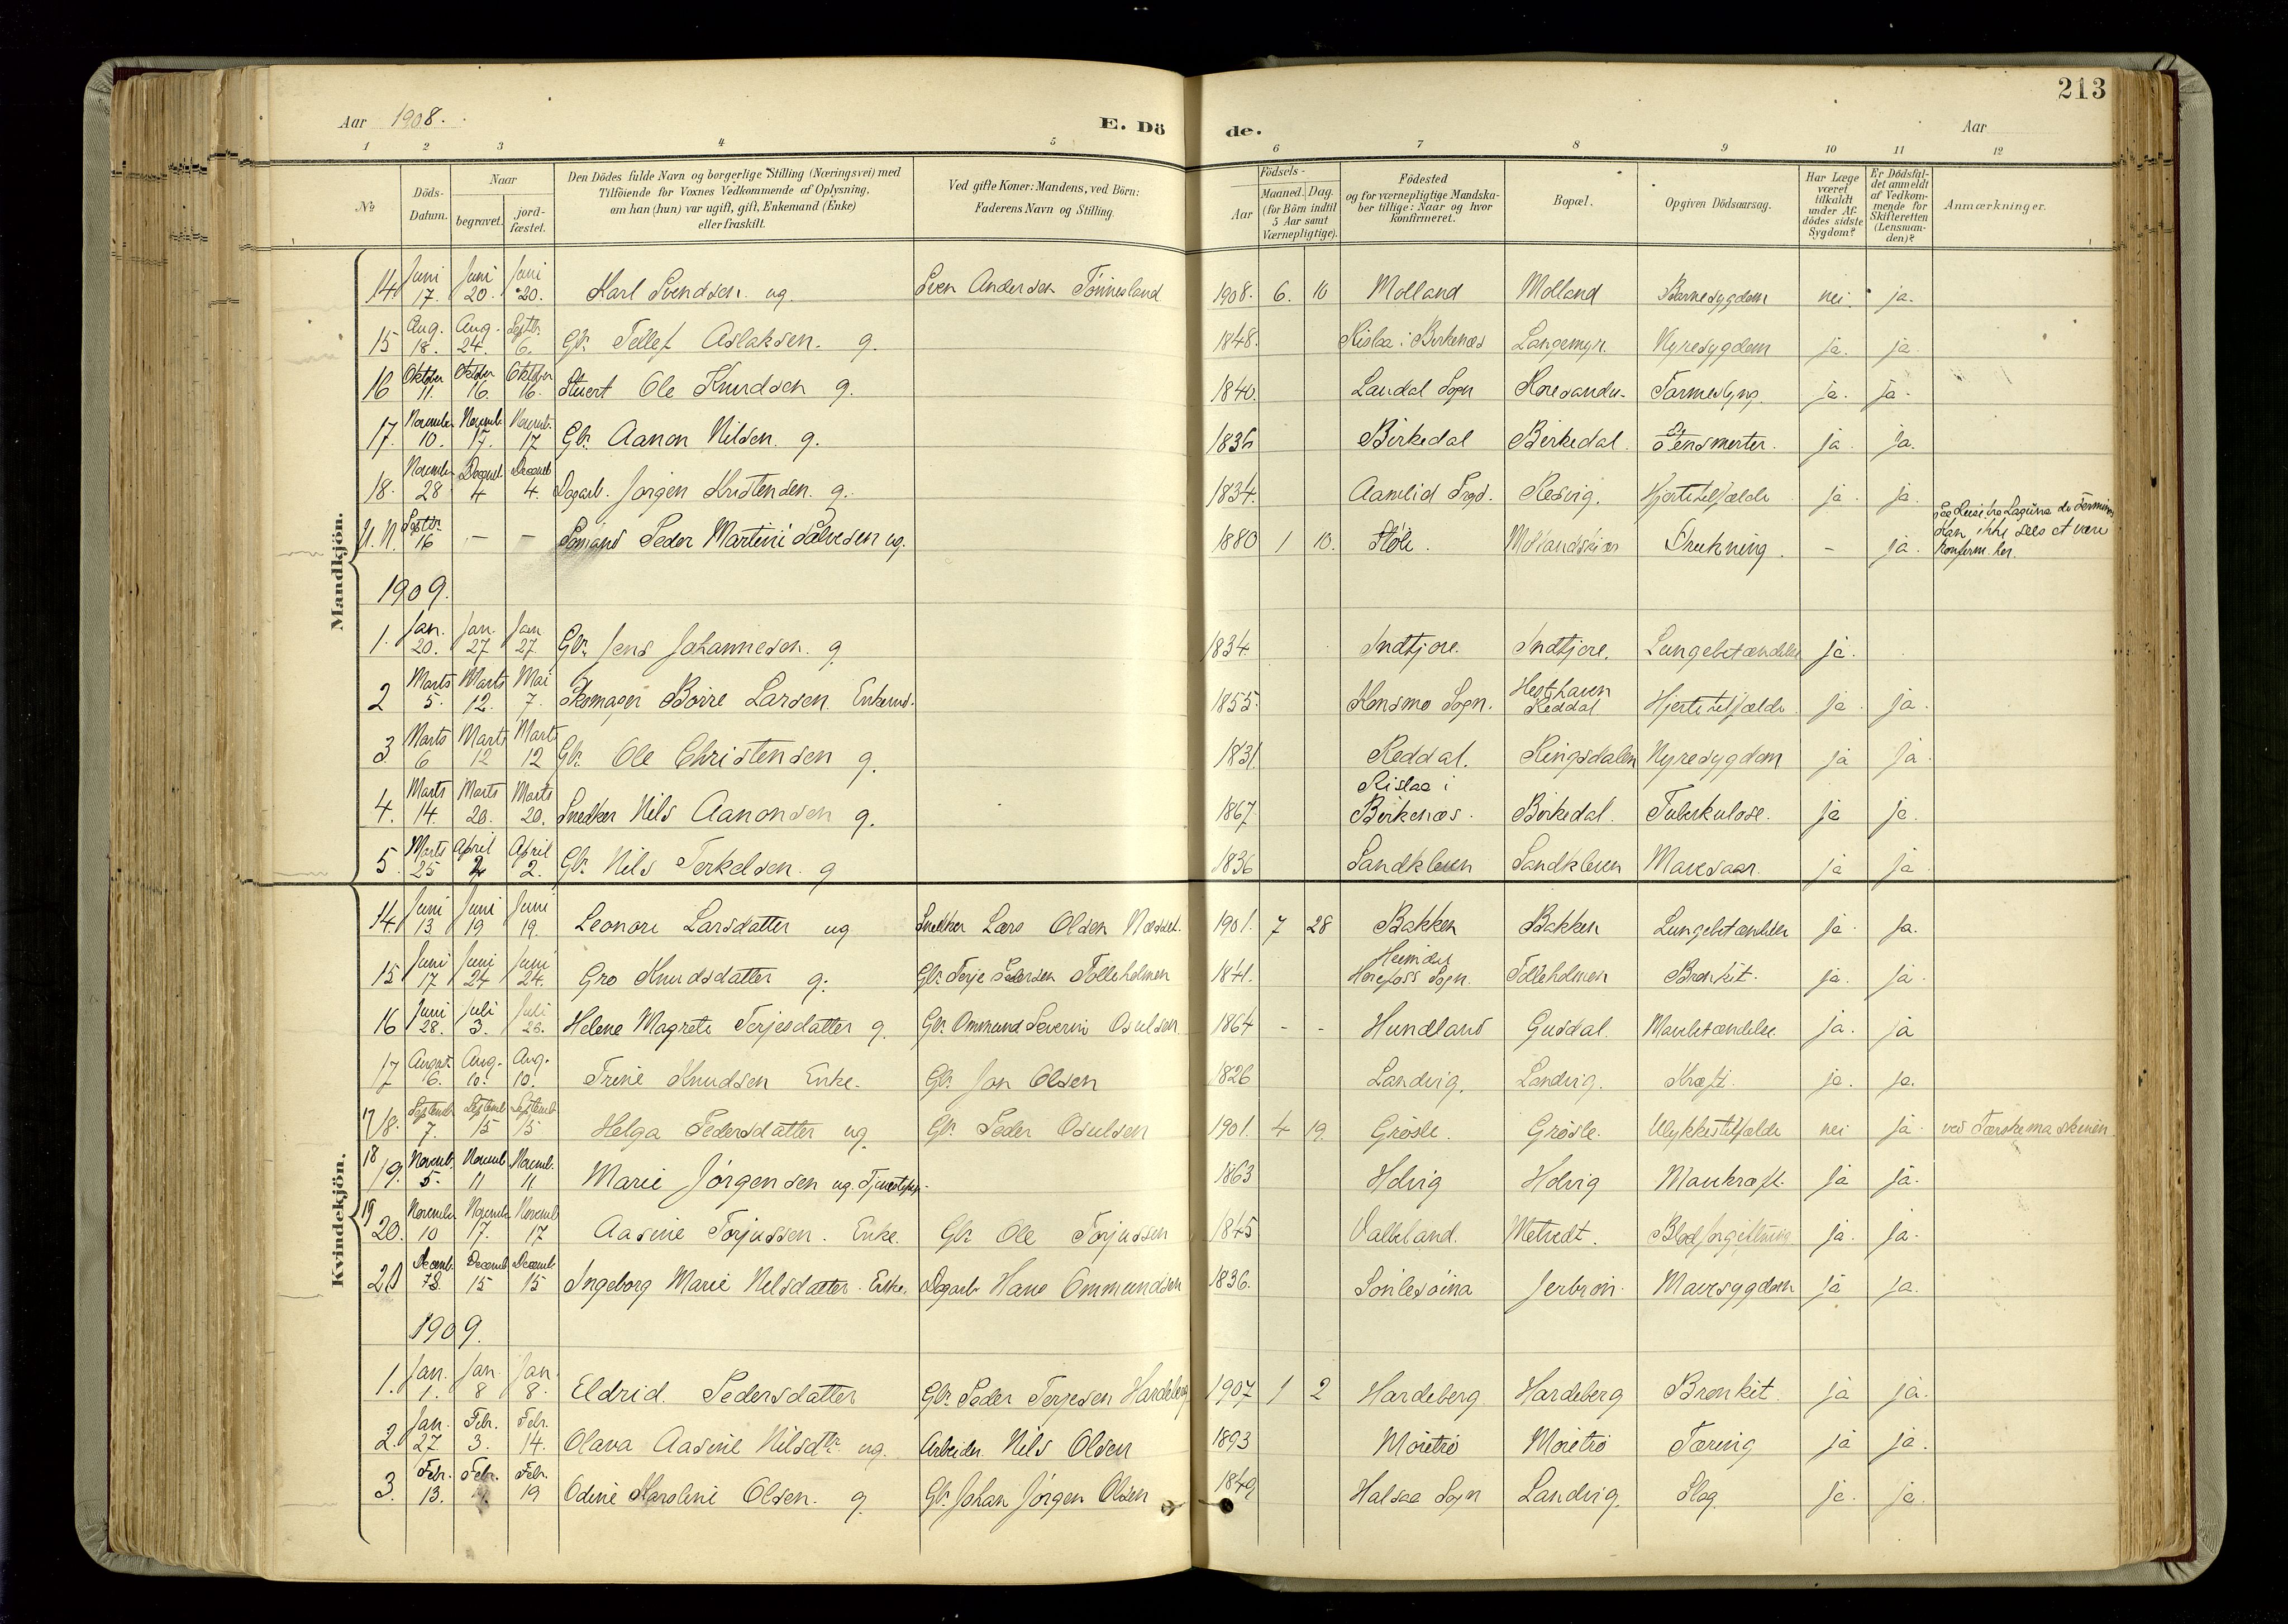 213
Aar 1908.
E. Dö de.
Aar
1 2 3 4 5 6 7 8 9 10 11 12
No
Döds-Datum.
Naar
begravet.
jord-fæstet.
Den Dödes fulde Navn og borgerlige Stilling (Næringsvei) med
Tilföiende for Voxnes Vedkommende af Oplysning,
om han (hun) var ugift, gift, Enkemand (Enke)
eller fraskilt.
Ved gifte Koner: Mandens, ved Börn:
Faderens Navn og Stilling.
Födsels-
Aar
Maaned. Dag.
(for Börn indtil
5 Aar samt
Værnepligtige).
Födested
og for værnepligtige Mandska-
ber tillige: Naar og hvor
konfirmeret.
Bopæl.
Opgiven Dödsaarsag.
Har Læge
været
tilkaldt
under Af-
dödes sidste
Sygdom?
Er Dödsfal-
det anmeldt
af Vedkom-
mende for
Skifteretten
(Lensman-
den)?
Anmærkninger.
Mandkjön.
14 Juni 17. Juni 20. Juni 20. Karl Svendsen. ug. Sven Andersen Tönnesland 1908. 6. 10 Molland Molland Barnesygdom nei. ja.
15 Aug. 18. Aug. 24. Septbr. 6. Gbr. Tellef Aslaksen. g. 1848. Rislaa i Birkenæs Langemyr. Nyresygdom ja. ja.
16 Oktober 11. Oktober 16. Oktober 16. Stuert Ole Knudsen g. 1840. Laudal Sogn ja. ja.
17. November 10. Novemb. 17. Novemb. 17 Gbr. Aanon Nilsen. g. 1836 Birkedal Birkedal. Stensmerter. ja. ja.
18. November 28 Decemb. 4 Decemb. 4. Dagarb. Jørgen Kristensen. g. 1834. Aamlid Sogn. Resvig. Hjertetilfælde ja. ja.
U. N. Septbr. 16 — — Sømand Peder Martini Salvesen ug. 1880 1 10. Støle. Mollandskjær Drukning. - ja.
Kan ikke sees at være
konfirm. her.
1909.
1. Jan. 20. Jan. 27 Jan. 27. Gbr. Jens Johannesen. g. 1834. Indtjore. Indtjore. Lungebetændelse ja.
2 Marts 5. Marts 12. Mai 7. Skomager Börre Larsen. Enkemd. 1855. Konsmo Sogn. Hesthaven Reddal Hjertetilfælde ja. ja.
3. Marts 6 Marts 12 Marts 12 Gbr. Ole Christensen g. 1831. Reddal. Ringsdalen Nyresygdom ja ja.
4. Marts 14. Marts 20. Marts 20. Snedker Nils Aanonsen g. 1867 Rislaa i Birkenæs. Birkedal. Tuberkulose. ja ja.
5. Marts 25 April 2 April 2. Gbr. Nils Terkelsen. g 1836 Sandkleven Sandkleven Mavesaar. ja ja
Kvindekjön.
14. Juni 13. Juni 19 Juni 19. Leonore Larsdatter ug Snedker Lars Olsen Næsset. 1901. 7 28 Bakken Bakken Lungebetændelse ja. ja.
15 Juni 17 Juni 24 Juni 24. Gro Knudsdatter g. Gbr. Terje Pedersen Tolleholmen 1841. Herefoss Sogn. Tolleholmen Bronkit. ja. ja.
16 Juni 28. Juli 3. Juli 26. Helene Magrete Terjesdatter g. Gbr. Ommund Severin Osulsen 1864 - - Hundland Gusdal. Mavebetændelse. ja. ja
17 August 6. Aug. 10. Aug. 10. Trine Knudsen Enke. Gbr. Jon Olsen 1826 Landvig. Landvig. Kræft. ja. ja.
17 18. Septemb. 7. Septemb. 15 Septemb. 15 Helga Pedersdatter ug Gbr. Peder Osulsen 1901. 4 19. Grøsle. Grøsle. Ulykkestilfælde nei ja. ved Tærskemaskinen
18 19. Novemb. 5. Novemb. 11 Novemb. 11 Marie Jørgensen ug. 1863 Holvig Holvig Mavekræft. ja ja.
19 20. November 10 Novemb. 17. Novemb. 17 Aasine Torjussen. Enke. Gbr. Ole Torjussen 1845 Valleland. Metvedt. Blodforgiftning ja. ja.
20 Decemb. 8. Decemb. 15 Decemb. 15 Ingeborg Marie Nilsdatter. Enke. Dagarb. Hans Ommundsen 1836. Mavesygdom ja ja.
1909.
1. Jan. 1. Jan. 8 Jan. 8. Eldrid. Pedersdatter Gbr. Peder Terjesen Hardeberg 1907 1 2 Hardeberg Hardeberg Bronkit. ja ja.
2. Jan. 27. Febr. 3. Febr. 14. Olava Aasine Nilsdtr. ug. Arbeider Nils Olsen 1893 Moietrø Moietrø Tæring ja ja.
3. Febr. 13. Febr. Febr. 19 Odine Karoline Olsen. g Gbr. Johan Jørgen Olsen 1849 Halsaa Sogn Landvig. Slag. ja. ja.